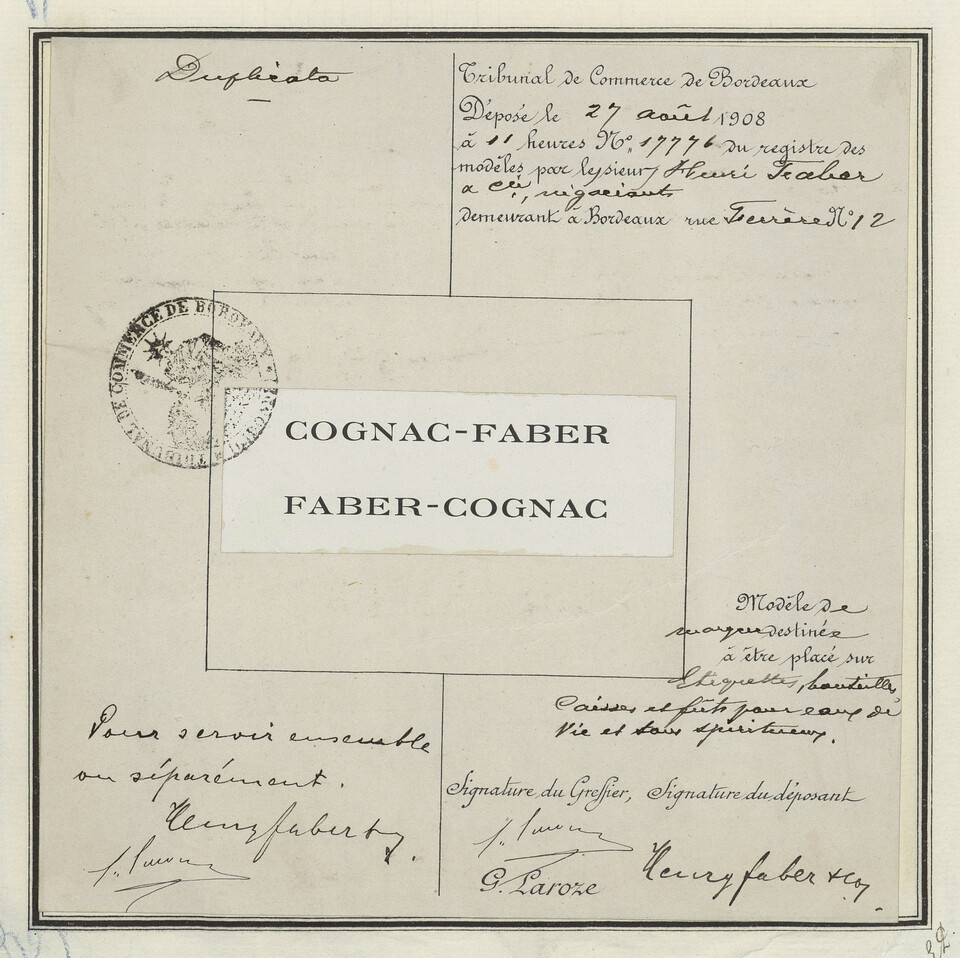 Duplicata
Tribunal de Commerce de Bordeaux
Déposé le 27 août 1908
à 11 heures No. 17776 du registre des
modèles par le sieur Henri Faber
& Cie, négociants
demeurant à Bordeaux rue Ferrère No 12
TRIBUNAL DE COMMERCE DE BORDEAUX
COGNAC-FABER
FABER-COGNAC
Modèle de
marque destinée
à être placé sur
Etiquettes, bouteilles,
Caisses et fûts pour eaux de
Vie et tous spiritueux.
Pour servir ensemble
ou séparément.
Henry Faber & Cy.
Signature du Greffier, Signature du déposant
G. Laroze
Henry Faber & Coy